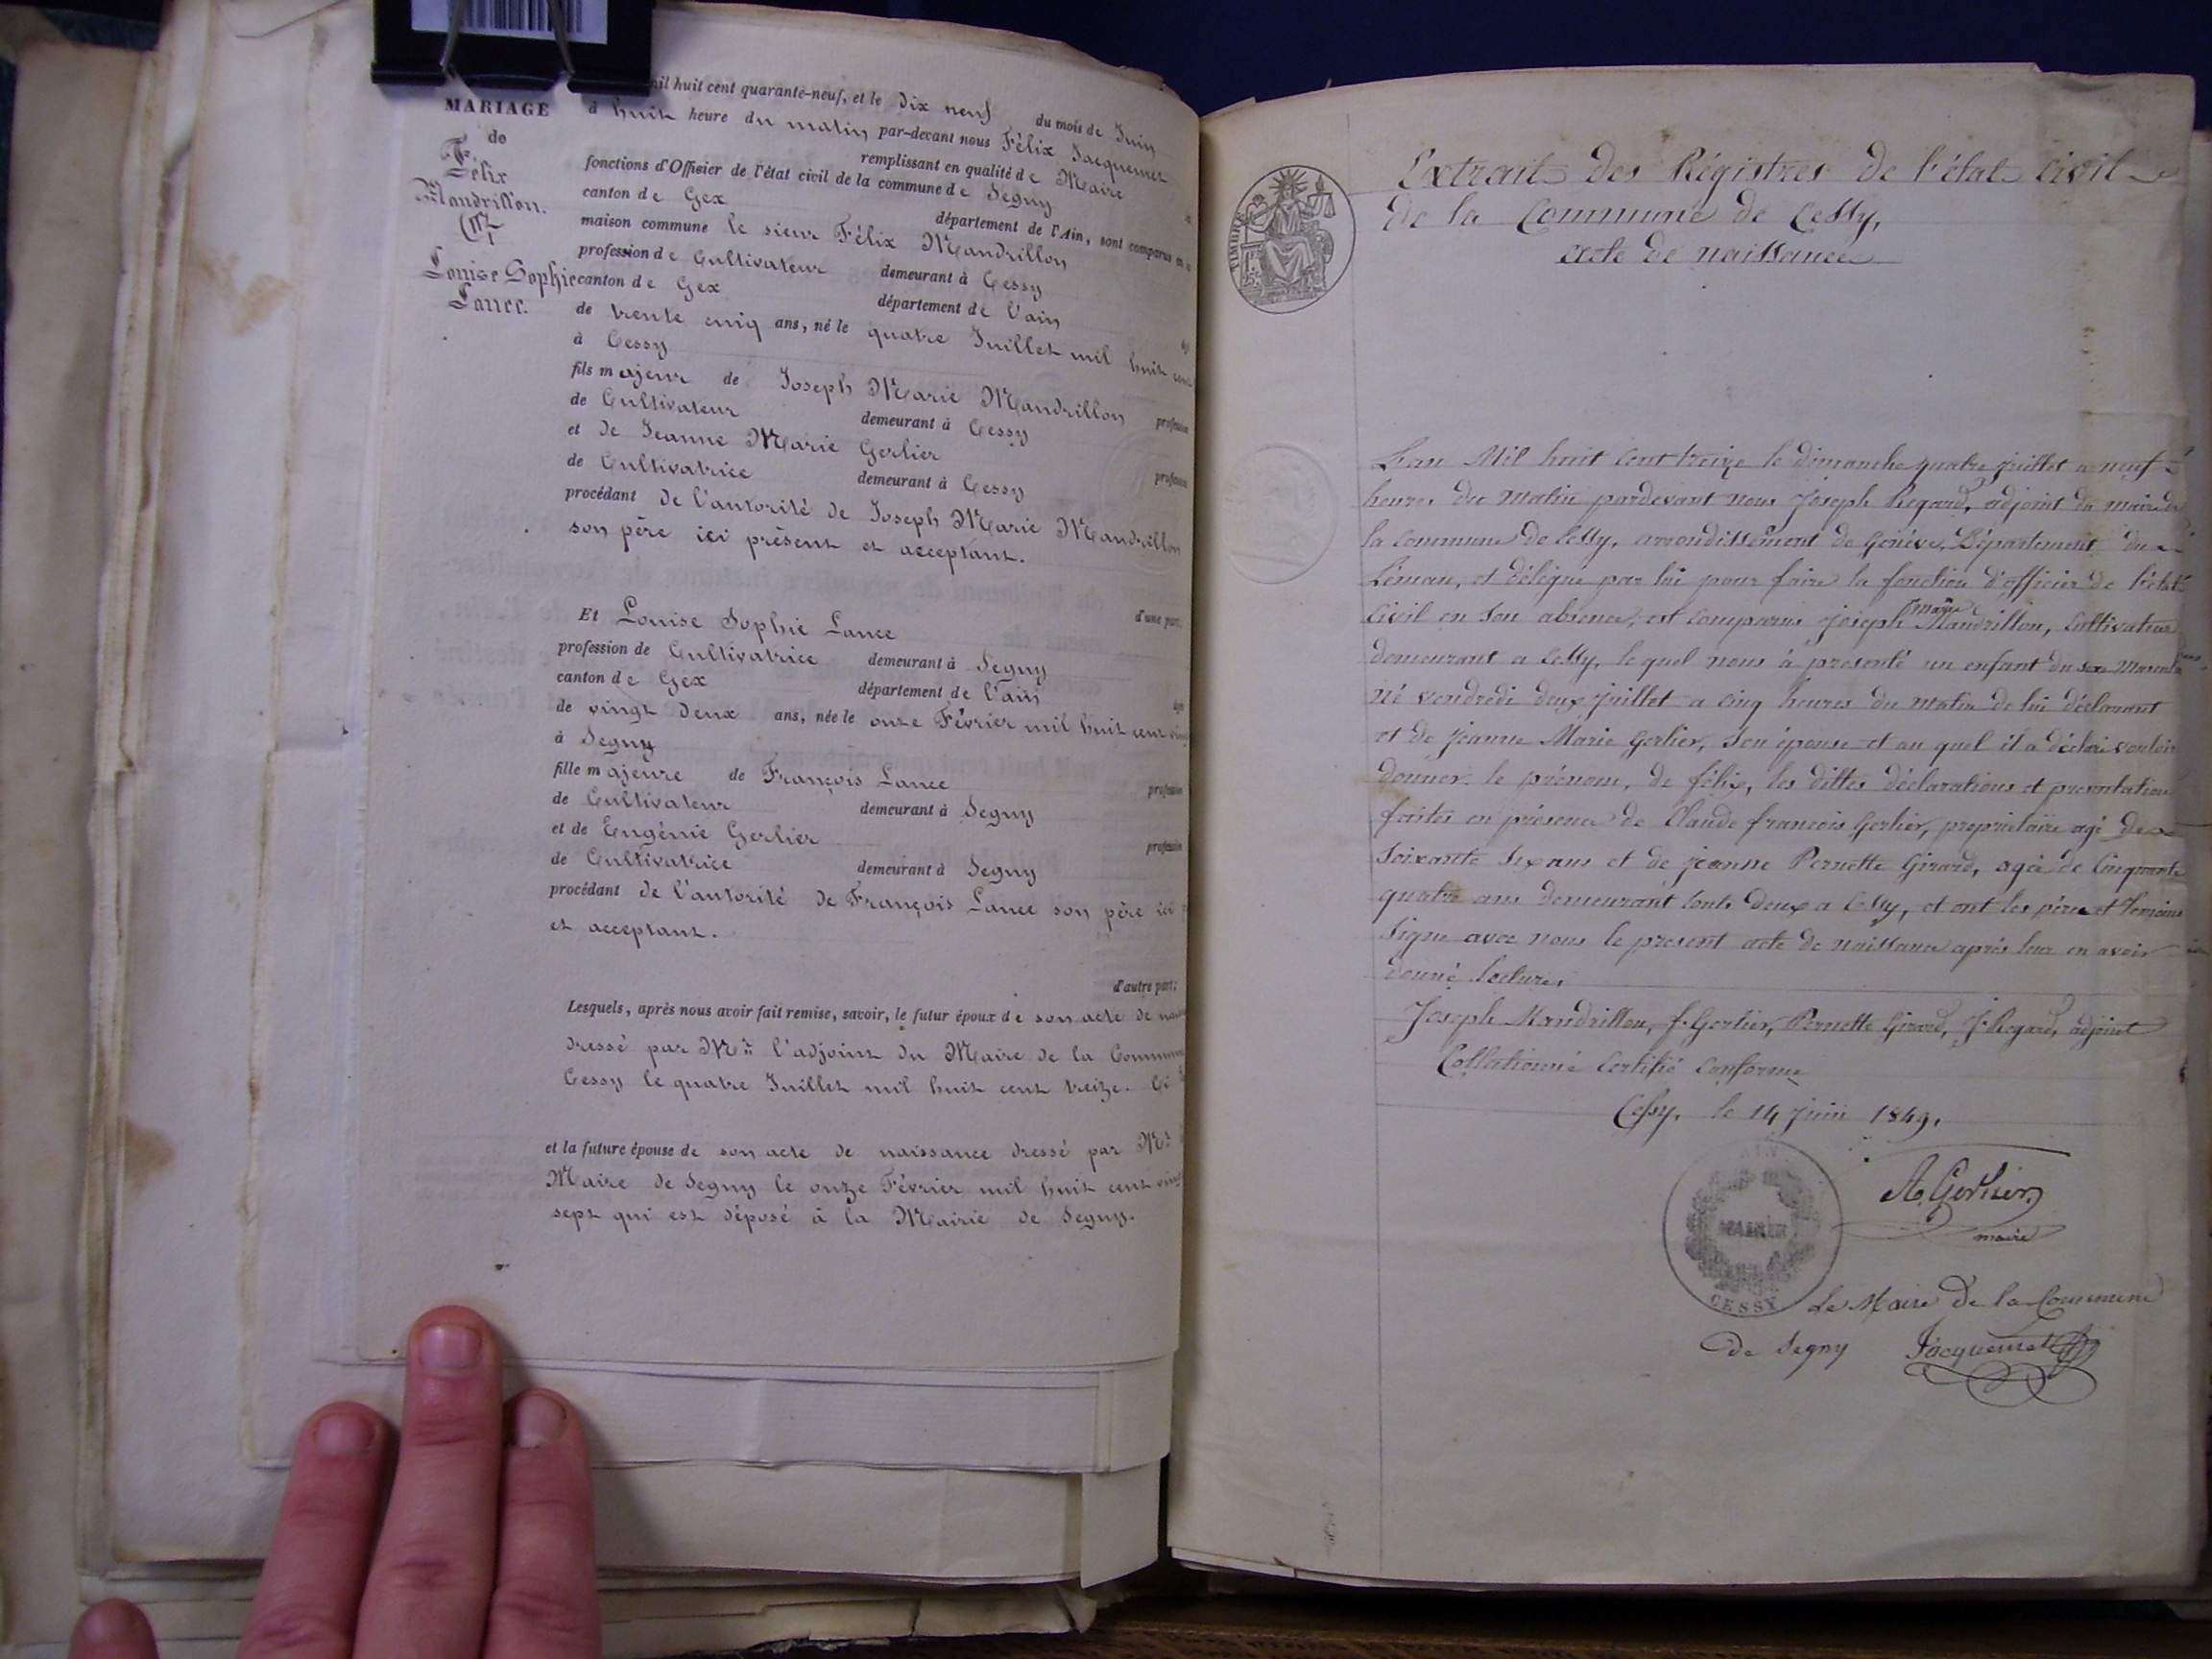 MARIAGE
de
Félix
Mandrillon.
Et
Louise Sophie
Lance.
mil huit cent quarante-neuf, et le dix neuf du mois de Juin
à huit heure du matin par-devant nous Félix Jacquemet
remplissant en qualité de Maire
fonctions d'Officier de l'état civil de la commune de Segny
canton de Gex département de l'Ain, sont comparus en la
maison commune le sieur Félix Mandrillon
profession de Cultivateur demeurant à Cessy
canton de Gex département de l'ain
de trente cinq ans, né le quatre Juillet mil huit cent
à Cessy
fils majeur de Joseph Marie Mandrillon profession
de Cultivateur demeurant à Cessy
et de Jeanne Marie Gerlier profession
de Cultivatrice demeurant à Cessy
procédant de l'autorité de Joseph Marie Mandrillon
son père ici présent et acceptant.
d'une part.
Et Louise Sophie Lance
profession de Cultivatrice demeurant à Segny
canton de Gex département de l'ain
de vingt deux ans, née le onze Février mil huit cent vingt
à Segny
fille majeure de François Lance profession
de Cultivateur demeurant à Segny
et de Eugénie Gerlier profession
de Cultivatrice demeurant à Segny
procédant de l'autorité de François Lance son père ici
et acceptant.
d'autre part;
Lesquels, après nous avoir fait remise, savoir, le futur époux de son acte de
dressé par Mr l'adjoint du Maire de la Commune
Cessy le quatre Juillet mil huit cent treize. Ci
et la future épouse de son acte de naissance dressé par Mr
Maire de Segny le onze Février mil huit cent vingt
sept qui est déposé à la Mairie de Segny.
TIMBRE
Extrait des Régistres de l'état civil
de la Commune de Cessy,
acte de naissance
L'an Mil huit Cent treize le dimanche quatre juillet a neuf
heures du Matin pardevant nous Joseph Regard, adjoint du maire de
la Commune de Cessy, arrondissement de Genève, Département du
Léman, et délégué par lui pour faire la fonction d'officier de l'état
Civil en son absence, est comparus Joseph Marie Mandrillon, Cultivateur
demeurant a Cessy, lequel nous à presenté un enfant du sexe Masculin
né vendredi deux juillet a cinq heures du matin de lui déclarant
et de Jeanne Marie Gerlier, son épouse et au quel il a déclaré vouloir
donner le prénom, de félix, les dittes déclarations et presentation
faites en présence de Claude francois Gerlier, propriétaire agé de
soixante six ans et de Jeanne Pernette Girard, agée de Cinquante
quatre ans demeurant touts deux a Cessy, et ont les père et témoins
signé avec nous le present acte de naissance après leur en avoir
donné lecture.
Joseph Mandrillon, f. Gerlier, Pernette Girard, J. Regard, adjoint
Collationné Certifié Conforme
Cessy, le 14 juin 1849.
A. Gerlier
maire
MAIRIE
CESSY
Le Maire de la Commune
de Segny Jacquemet